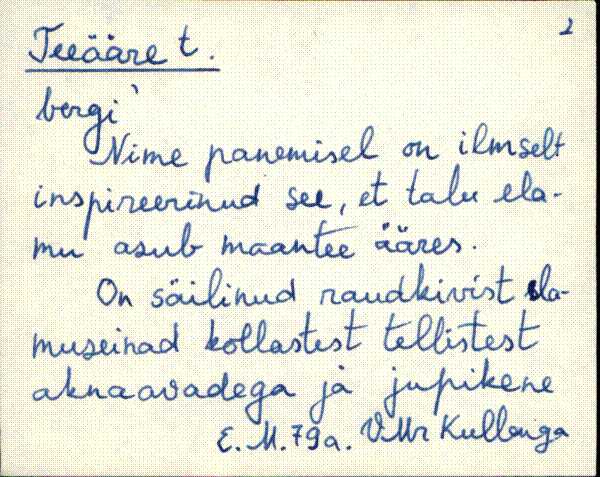 2
Teeääre t.
bergi`
Nime panemisel on ilmselt
inspireerinud see, et talu ela-
mu asub maantee ääres.
On säilinud raudkivist ela-
museinad kollastest tellistest
aknaavadega ja jupikene
E. M. 79a. VMr Kullenga